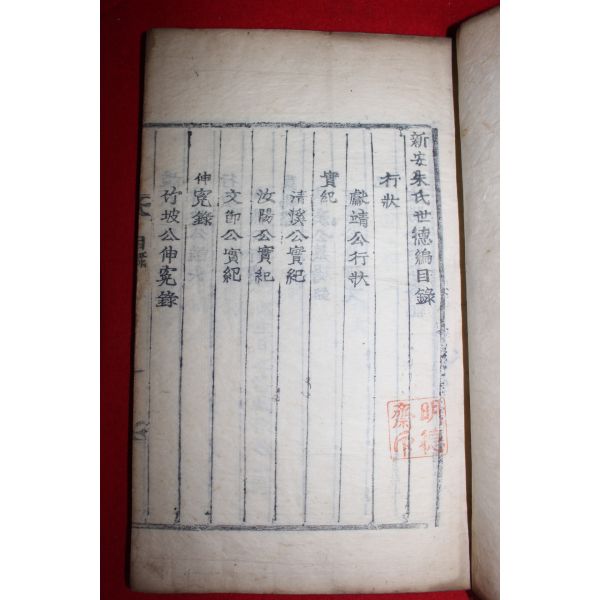 新安朱氏世德編目錄
行狀
獻靖公行狀
實紀
清溪公實紀
汝陽公實紀
文節公實紀
伸寃錄
竹坡公伸寃錄
目錄
明德
齋